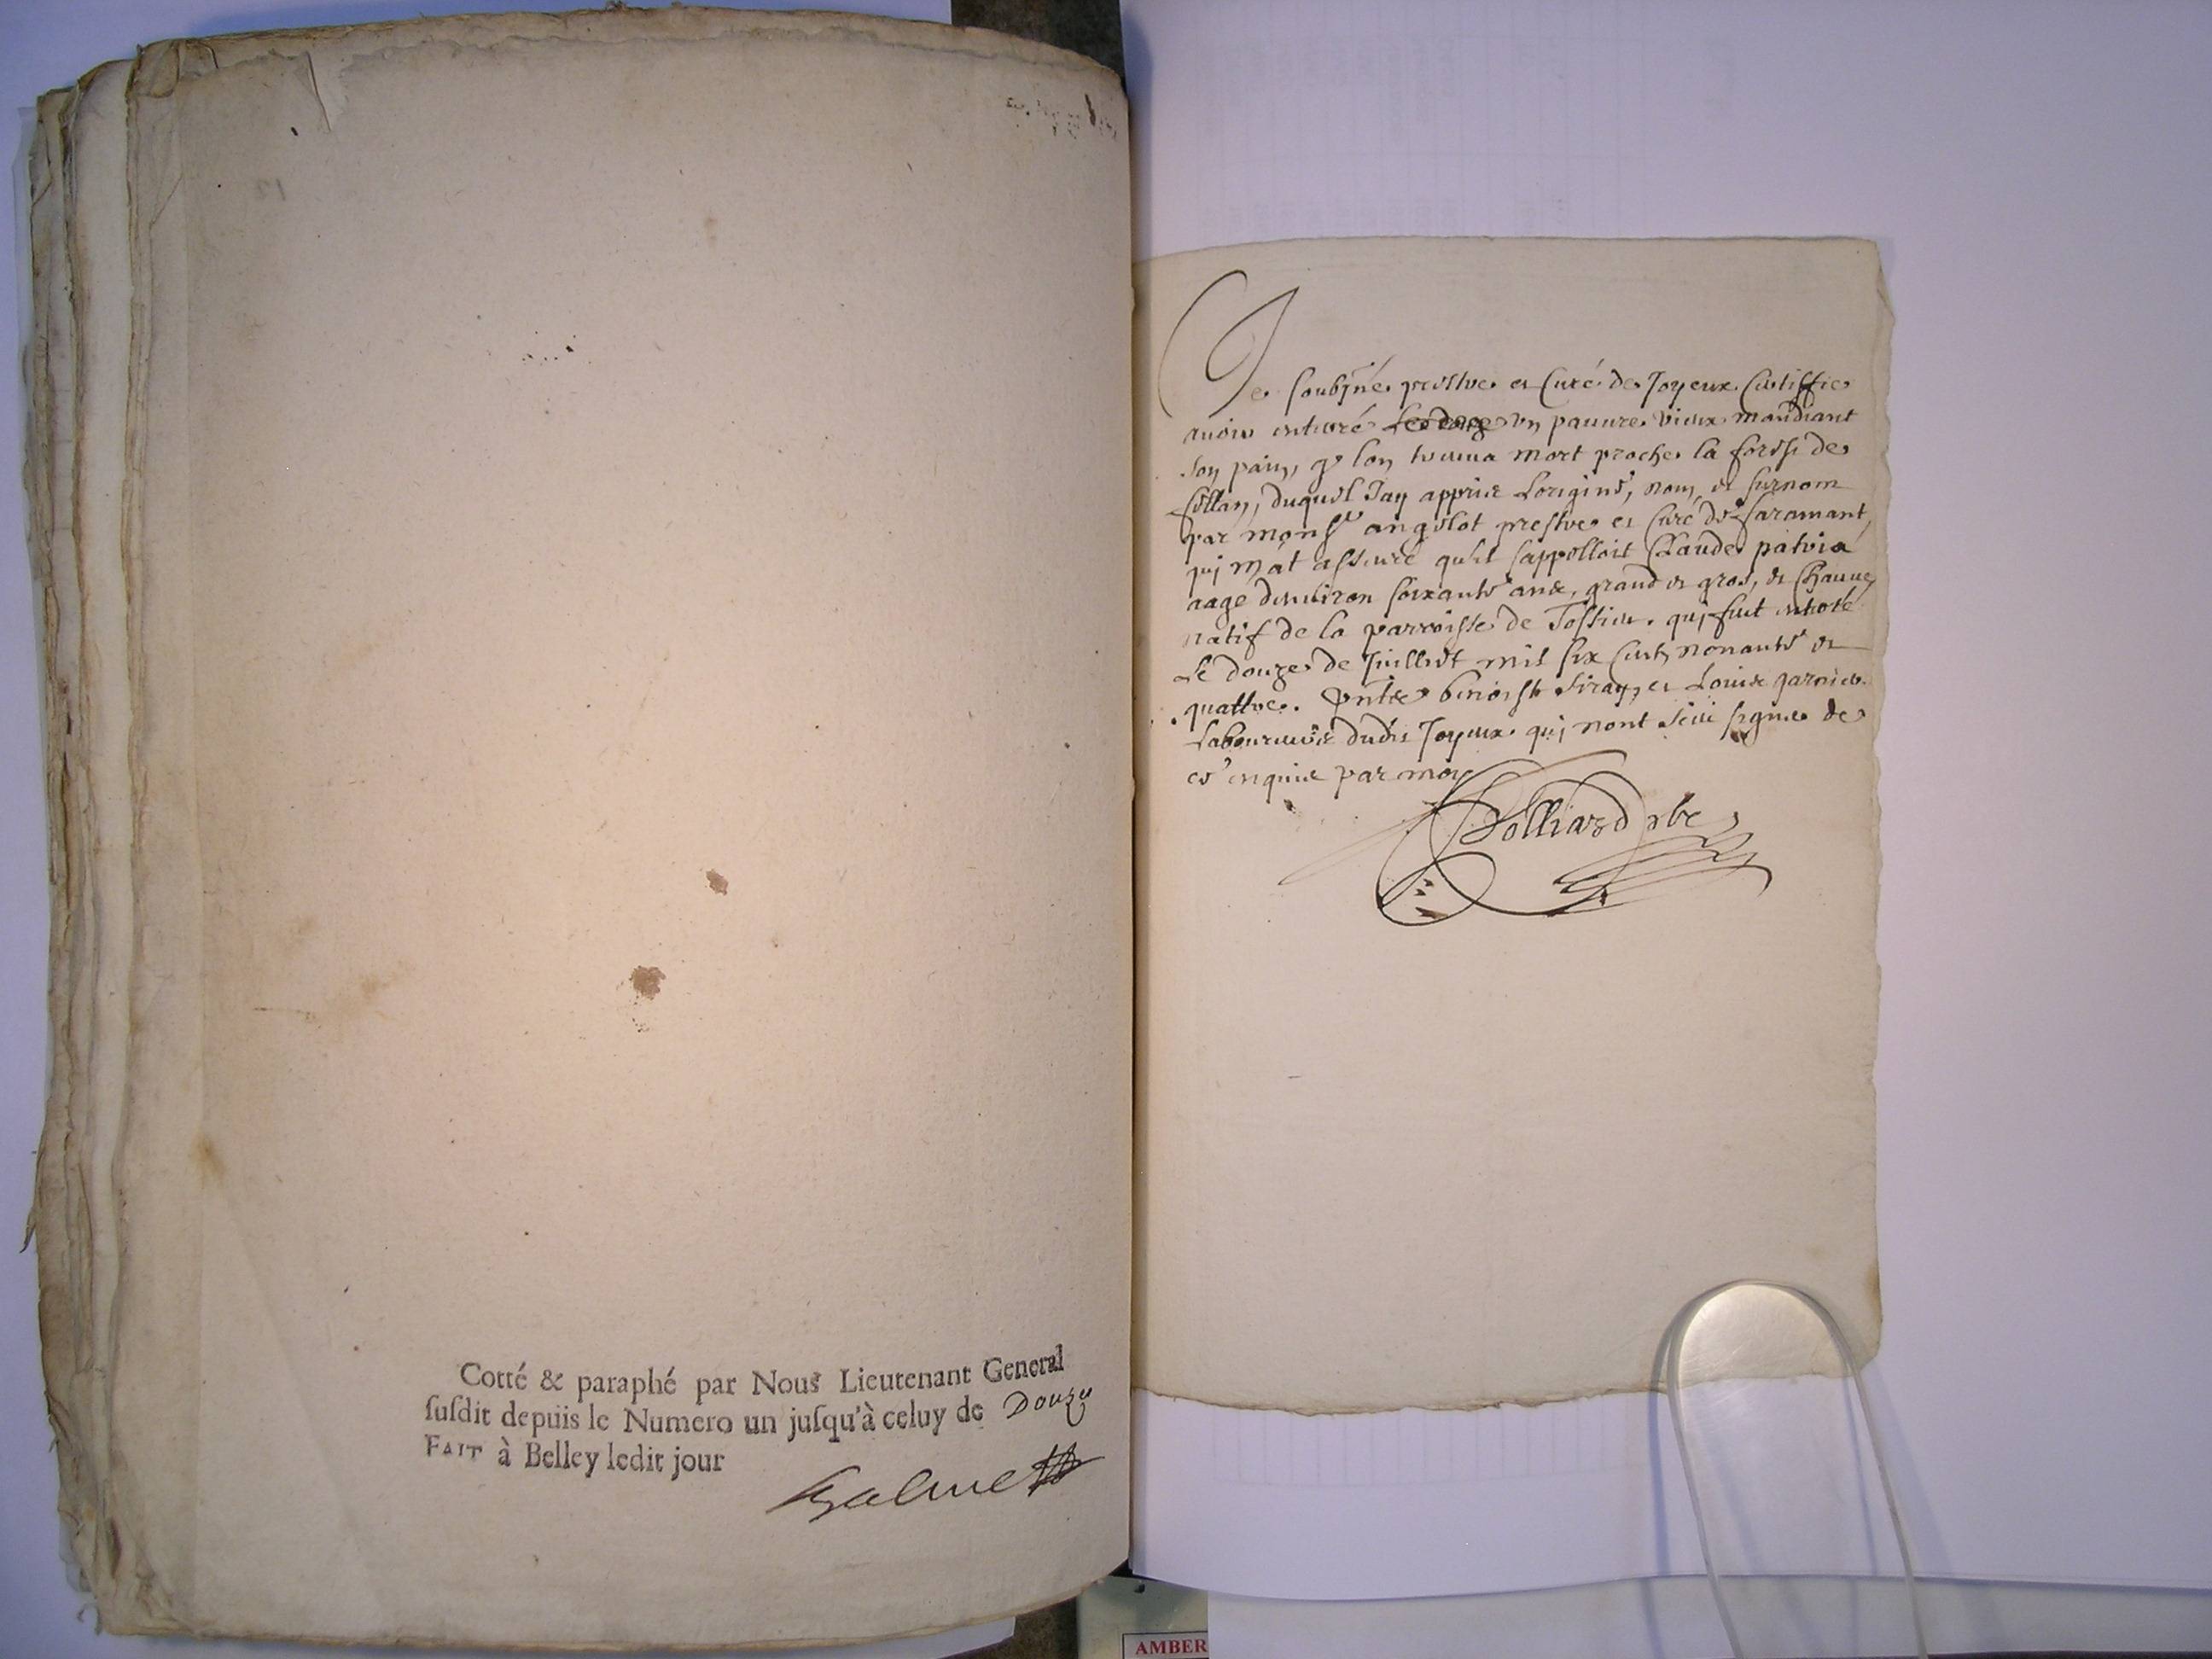 Cotté & paraphé par Nous Lieutenant General
ſuſdit depuis le Numero un juſqu'à celuy de Douze
FAIT à Belley ledit jour
Je soubsiné prestre et Curé de Joyeux Certiffie
avoir enterré Le douze un pauvre vieux mandiant
son pain, q̃ lon trouva mort proche la forest de
duquel Jay apprice Lorigine, nom et surnom
par monsr angelot prestre et Curé de faramant
qui mat asseuré quil sappelloit Claude
aagé denviron soixante ans, grand et gros, et Chauve
natif de la parroisse de Tossieu. qui fut enterré
Le douze de Juillet mil six cent nonante et
quattre. benoist et Louise garnier
Laboureurs dudit Joyeux qui nont sceu signer de
ce enquis par moy
Polliard pbre
AMBER